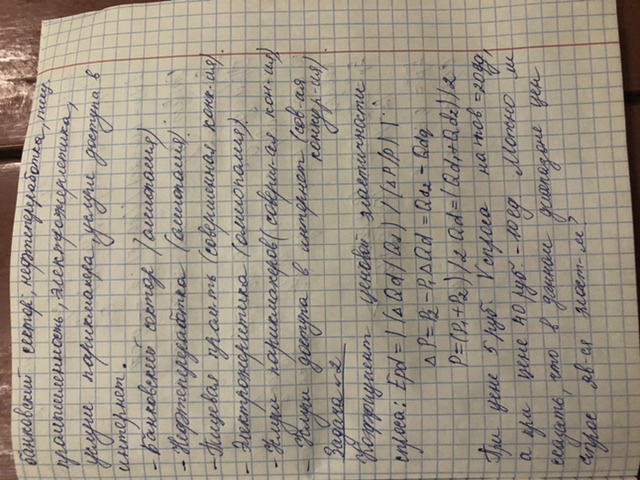 банковский сектор, нефтепереработка, пищ
промышленность, электроэнергетика,
услуги парикмахера, услуги доступа в
интернет.
- Банковский сектор (олигополия)
- Нефтепереработка (олигополия)
- Пищевая пром-ть (совершенная конк-ия)
- Электроэнергетика (олигополия)
- Услуги парикмахеров (соверш-ая кон-ия)
- Услуги доступа в интернет (сов-ая
конкур-ия)
Задача №2
Коэффициент ценовой эластичности
спроса: Epd = | (ΔQd/Qd) / (ΔP/P) |
ΔP = P2 - P1 ΔQd = Qd2 - Qd1
P = (P1 + P2)/2 Qd = (Qd1 + Qd2)/2
При цене 5 руб V спроса на тов = 20 ед,
а при цене 40 руб - 10 ед Можно ли
сказать, что в данном диапазоне цен
спрос яв-ся эласт-м?